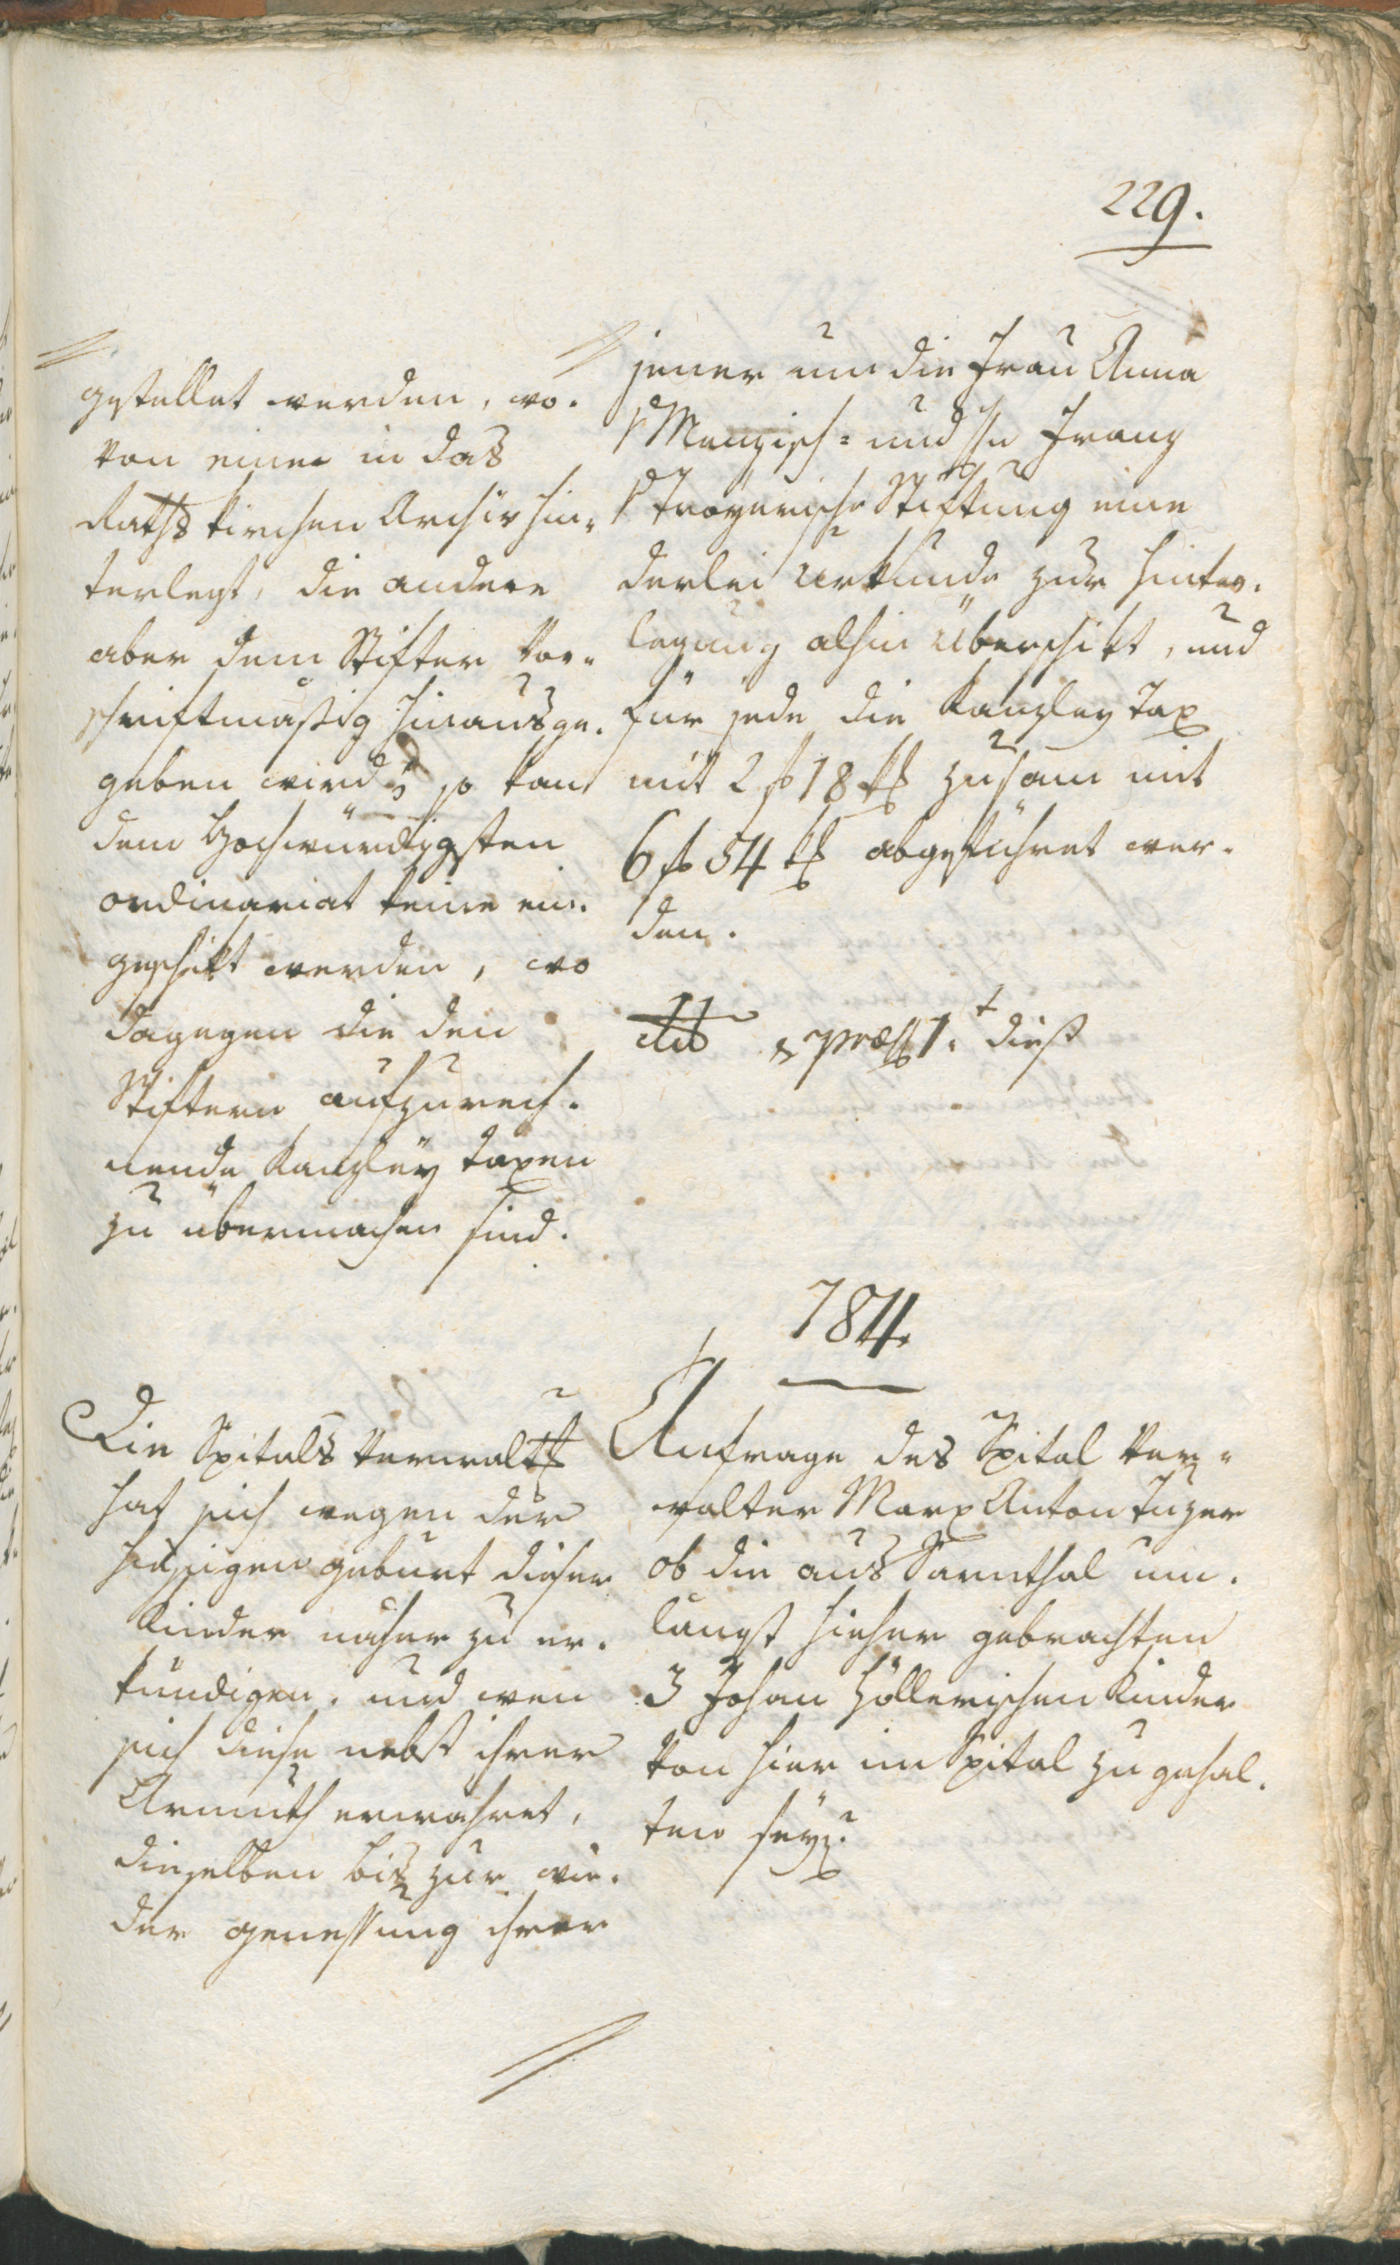 229.
gestellet werden, wo-
von eine in das
Raths kirchen Archiv hin-
terlegt, die andere
aber dem Stifter vor-
schriftmäßig hinausge-
geben wird, so kan
dem Hochwürdigsten
ordinariat keine ein-
geschikt werden, wo
dagegen die den
Stiftern aufzurech-
nende Kanzley taxen
zu übermachen sind.
jener um die Frau Anna
v Menzisch- und H Franz
v Troyerische Stiftung eine
derlei Urkunde zur hinter-
legung alhin überschikt, und
für jede die Kanzley Tax
mit 2 f 18 kr zusam mit
6 f 54 kr abgeführet wer-
den.
dto & præs 1. dieß
784.
Die Spitals verwaltg
hat sich wegen der
hiesigen geburt dieser
Kinder näher zu er-
kundigen, und wen
sich diese nebst ihrer
Armuth erwahret,
dieselben bis zur wie-
der genessung ihrer
Anfrage des Spital ver-
walter Marx Anton Tuzer
ob die aus Sarnthal un-
längst hieher gebrachten
3 Johan Höllerischen Kinder
von hier im Spital zu gehal-
ten seyn?